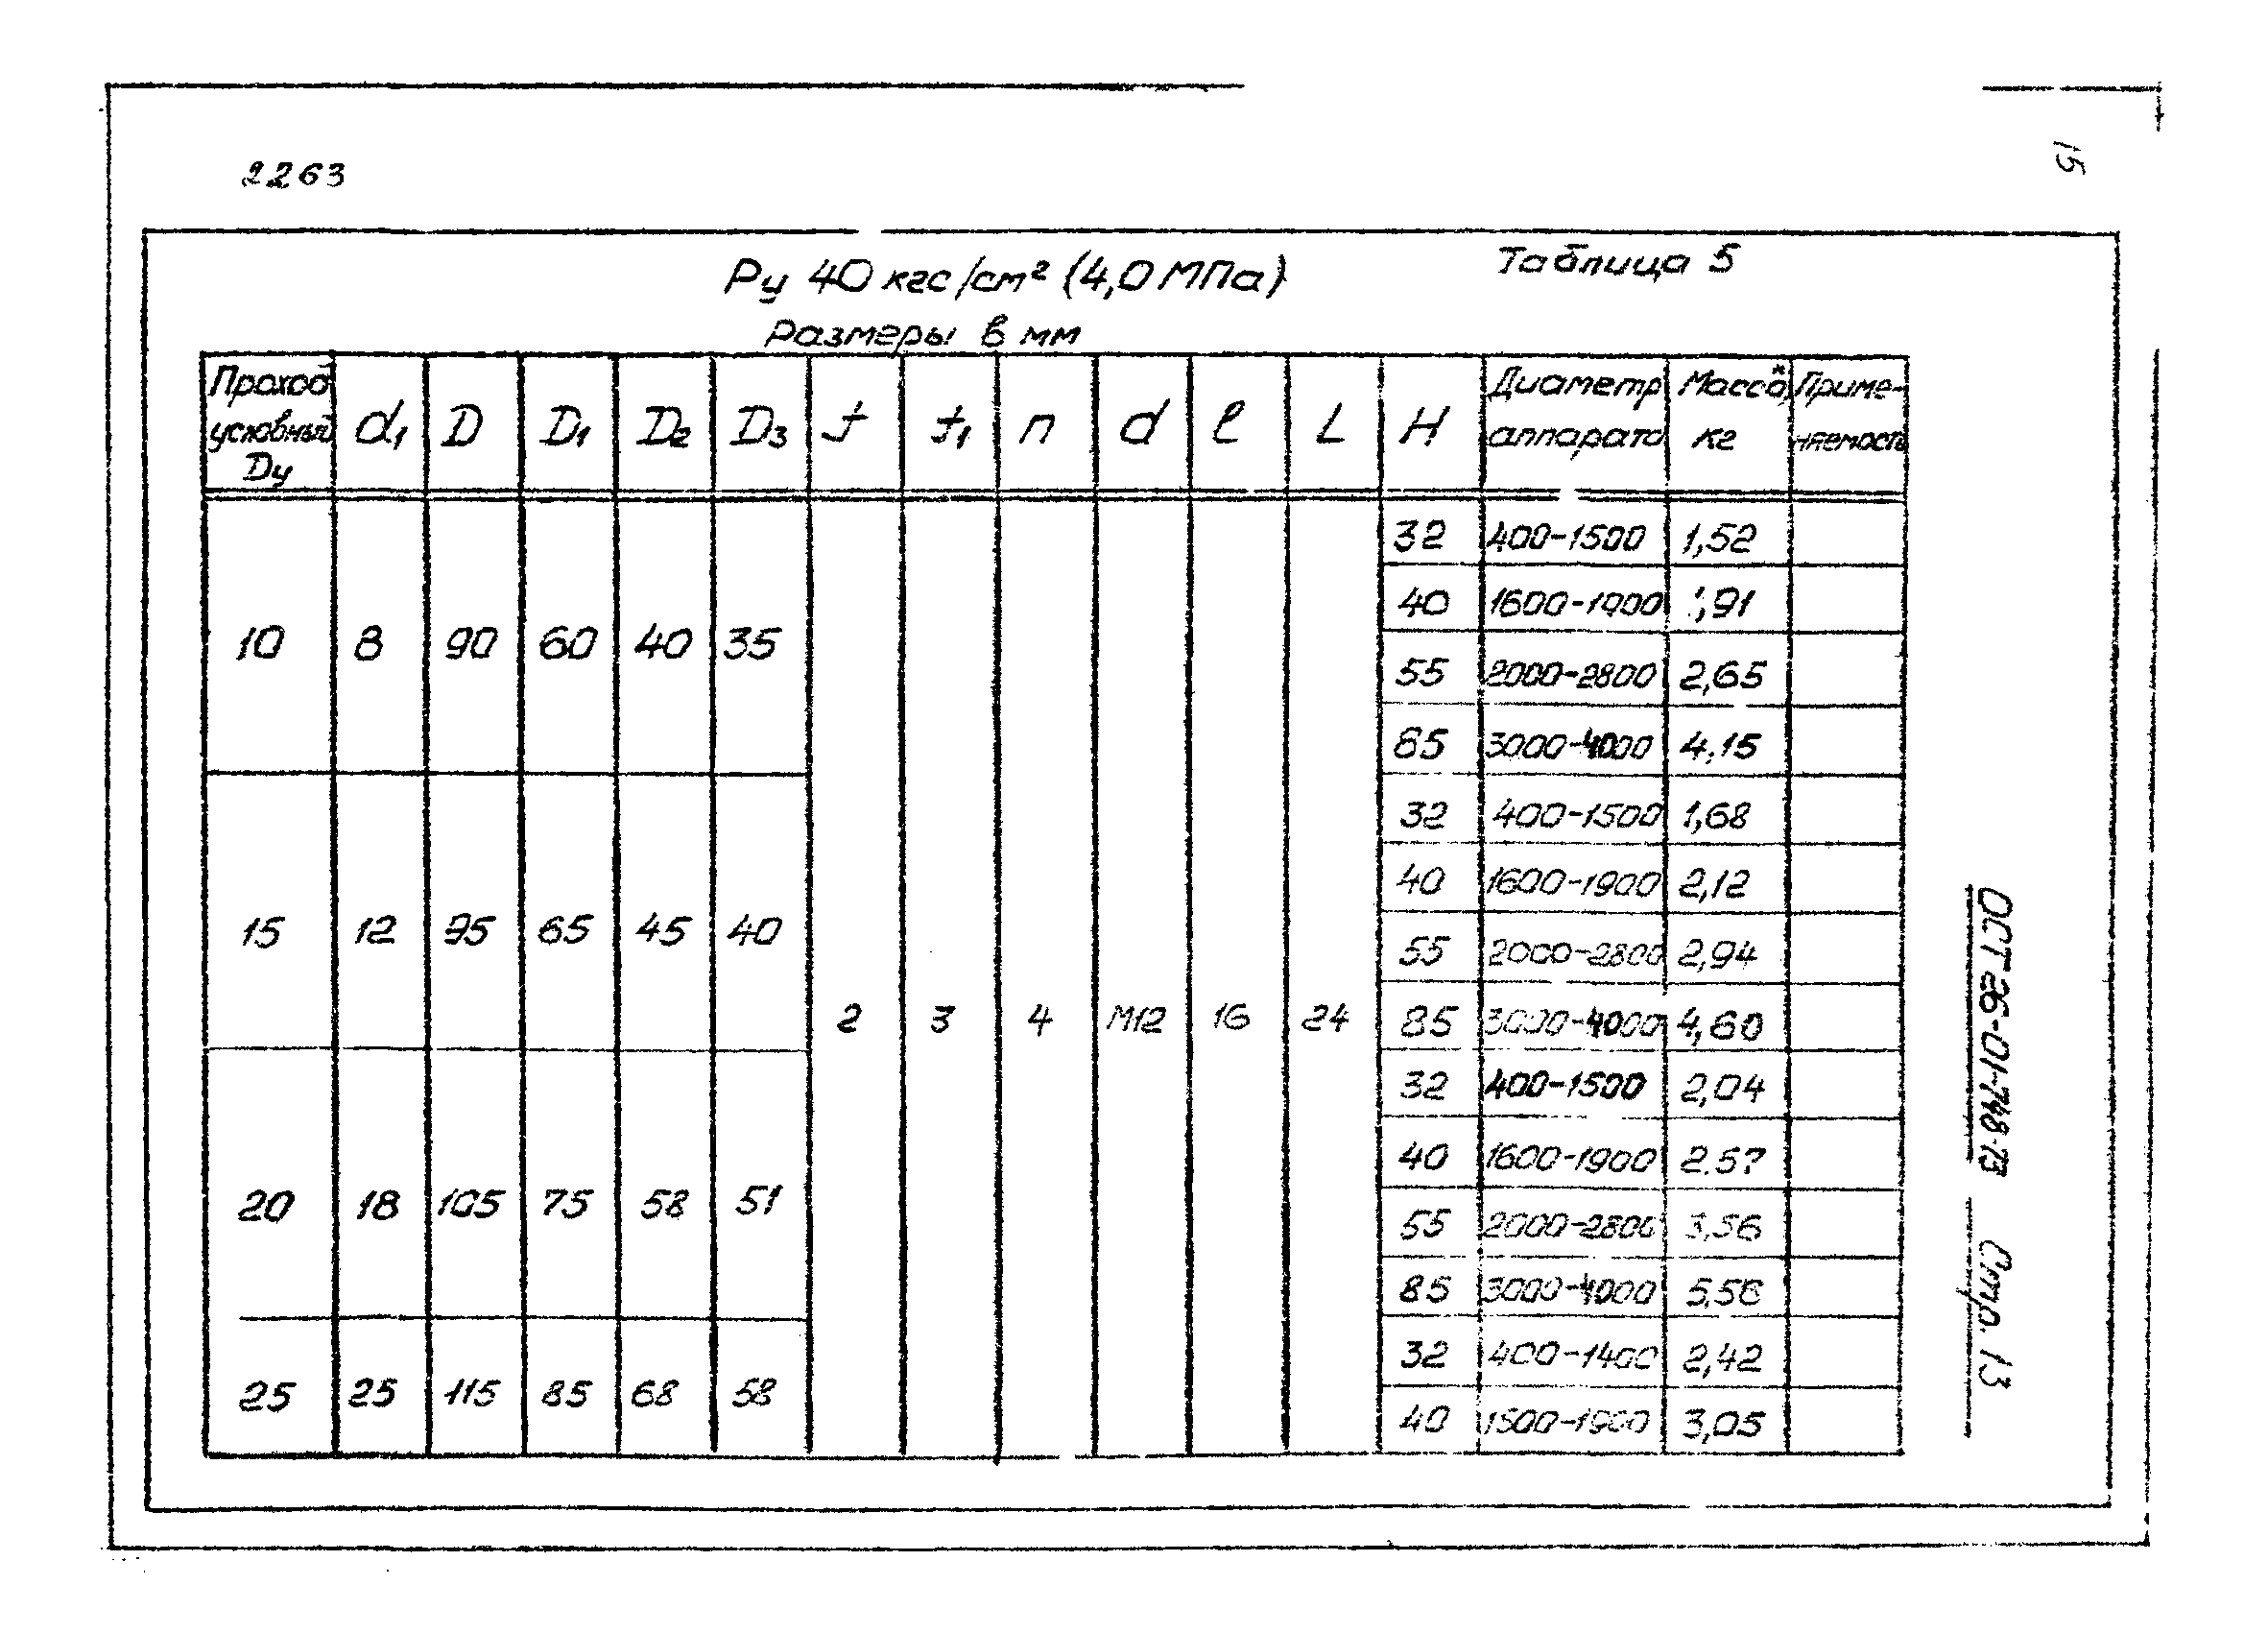 2263
15
Ру 40 кгс/см² (4,0 МПа)
Таблица 5
Размеры в мм
Проход условный Dу d₁ D D₁ D₂ D₃ f f₁ n d ℓ L H Диаметр аппарата Масса*, кг Приме-няемость
32 400-1500 1,52
40 1600-1900 1,91
10 8 90 60 40 35
55 2000-2800 2,65
85 3000-4000 4,15
32 400-1500 1,68
40 1600-1900 2,12
15 12 95 65 45 40
55 2000-2800 2,94
2 3 4 М12 16 24
85 3000-4000 4,60
32 400-1500 2,04
40 1600-1900 2.57
20 18 105 75 58 51
55 2000-2800 3,56
85 3000-4000 5,56
32 400-1400 2,42
25 25 115 85 68 58
40 1500-1900 3,05
ОСТ 26-01-748-73 Стр. 13